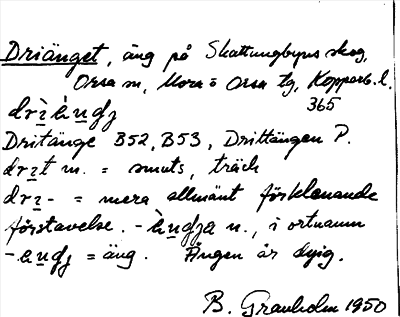 Driänget, äng på Skattungbyns skog,
Orsa sn, Mora o Orsa tg, Kopparb. l.
365
Dritänge B52, B53, Drittängen P.
m. = smuts, träck
= mera allmänt förklenande
förstavelse. - n., i ortnamn
= äng. Ängen är dyig.
B. Granholm 1950